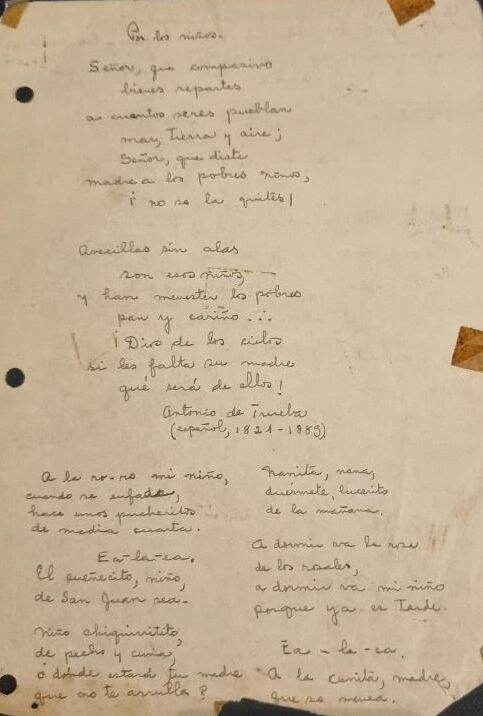 Por los niños.
Señor, que compasivo
bienes repartes
a cuantos seres pueblan
mar, tierra y aire;
Señor, que diste
madre a los pobres niños,
¡ no se la quites!
Avecillas sin alas
son esos niños,
y han menester los pobres
pan y cariño...
¡Dios de los cielos
si les falta su madre
qué será de ellos!
Antonio de Trueba
(español, 1821-1889)
A la ro-ro mi niño,
cuando se enfada,
hace unos pucheritos
de media cuarta.
Ea-la-ea.
El sueñecito, niño,
de San Juan sea-
Niño chiquirritito,
de pecho y cuna,
¿ dónde estará tu madre
que no te arrulla?
Nanita, nana,
duérmete, lucerito
de la mañana.
A dormir va la rosa
de los rosales,
a dormir va mi niño
porque ya es tarde.
Ea-la-ea.
A la cunita, madre,
que se menea.